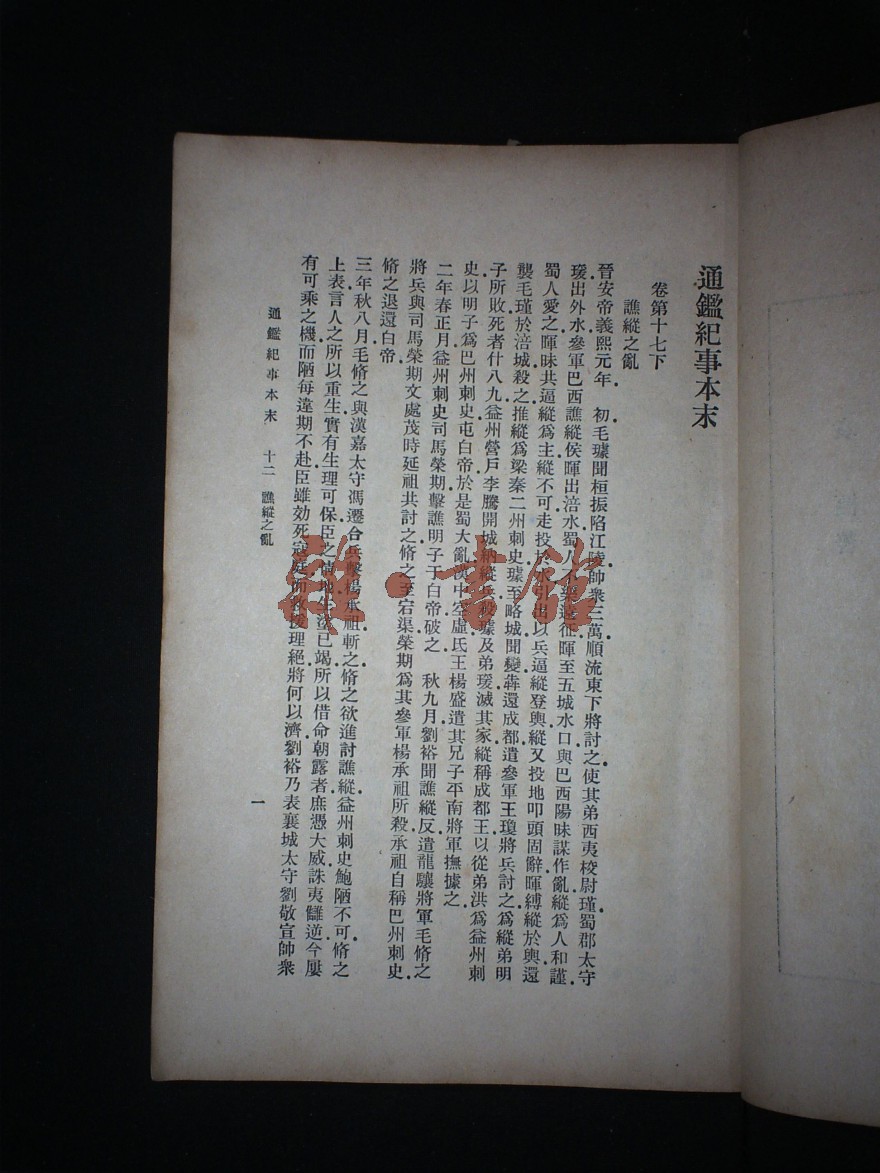 通鑑紀事本末
卷第十七下
譙縱之亂
晉安帝義熙元年　初毛璩聞桓振陷江陵帥衆三萬順流東下將討之使其弟西夷校尉瑾蜀郡太守
瑗出外水參軍巴西譙縱侯暉出涪水蜀人不樂遠征暉至五城水口與巴西陽昧謀作亂縱爲人和謹
蜀人愛之暉昧共逼縱爲主縱不可走投於水引出以兵逼縱登輿縱又投地叩頭固辭暉縛縱於輿還
襲毛瑾於涪城殺之推縱爲梁秦二州刺史璩至略城聞變奔還成都遣參軍王瓊將兵討之爲縱弟明
子所敗死者什八九益州營戶李騰開城納縱兵殺璩及弟瑗滅其家縱稱成都王以從弟洪爲益州刺
史以明子爲巴州刺史屯白帝於是蜀大亂漢中空虛氐王楊盛遣其兄子平南將軍撫據之
二年春正月益州刺史司馬榮期擊譙明子于白帝破之　秋九月劉裕聞譙縱反遣龍驤將軍毛脩之
將兵與司馬榮期文處茂時延祖共討之脩之至宕渠榮期爲其參軍楊承祖所殺承祖自稱巴州刺史
脩之退還白帝
三年秋八月毛脩之與漢嘉太守馮遷合兵擊楊承祖斬之脩之欲進討譙縱益州刺史鮑陋不可脩之
上表言人之所以重生實有生理可保臣之情地生塗已竭所以借命朝露者庶憑大威誅夷讎逆今屢
有可乘之機而陋每違期不赴臣雖効死寇庭而救援理絕將何以濟劉裕乃表襄城太守劉敬宣帥衆
通鑑紀事本末　十二　譙縱之亂
一
雅·書館